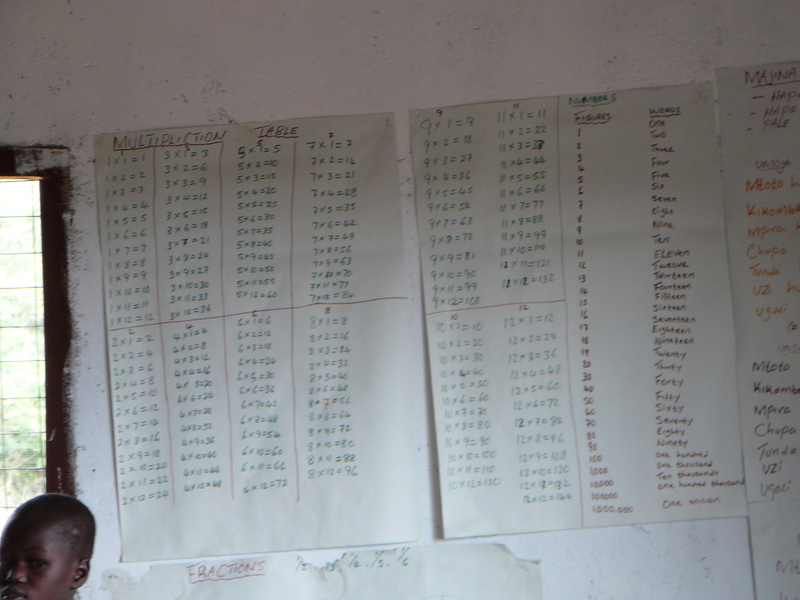 MULTIPLICTION TABLE
1 x 1 = 1
1 x 2 = 2
1 x 3 = 3
1 x 4 = 4
1 x 5 = 5
1 x 6 = 6
1 x 7 = 7
1 x 8 = 8
1 x 9 = 9
1 x 10 = 10
1 x 11 = 11
1 x 12 = 12
3
3 x 1 = 3
3 x 2 = 6
3 x 3 = 9
3 x 4 = 12
3 x 5 = 15
3 x 6 = 18
3 x 7 = 21
3 x 8 = 24
3 x 9 = 27
3 x 10 = 30
3 x 11 = 33
3 x 12 = 36
5
5 x 1 = 5
5 x 2 = 10
5 x 3 = 15
5 x 4 = 20
5 x 5 = 25
5 x 6 = 30
5 x 7 = 35
5 x 8 = 40
5 x 9 = 45
5 x 10 = 50
5 x 11 = 55
5 x 12 = 60
7
7 x 1 = 7
7 x 2 = 14
7 x 3 = 21
7 x 4 = 28
7 x 5 = 35
7 x 6 = 42
7 x 7 = 49
7 x 8 = 56
7 x 9 = 63
7 x 10 = 70
7 x 11 = 77
7 x 12 = 84
2
2 x 1 = 2
2 x 2 = 4
2 x 3 = 6
2 x 4 = 8
2 x 5 = 10
2 x 6 = 12
2 x 7 = 14
2 x 8 = 16
2 x 9 = 18
2 x 10 = 20
2 x 11 = 22
2 x 12 = 24
4
4 x 1 = 4
4 x 2 = 8
4 x 3 = 12
4 x 4 = 16
4 x 5 = 20
4 x 6 = 24
4 x 7 = 28
4 x 8 = 32
4 x 9 = 36
4 x 10 = 40
4 x 11 = 44
4 x 12 = 48
6
6 x 1 = 6
6 x 2 = 12
6 x 3 = 18
6 x 4 = 24
6 x 5 = 30
6 x 6 = 36
6 x 7 = 42
6 x 8 = 48
6 x 9 = 54
6 x 10 = 60
6 x 11 = 66
6 x 12 = 72
8
8 x 1 = 8
8 x 2 = 16
8 x 3 = 24
8 x 4 = 32
8 x 5 = 40
8 x 6 = 48
8 x 7 = 56
8 x 8 = 64
8 x 9 = 72
8 x 10 = 80
8 x 11 = 88
8 x 12 = 96
9
9 x 1 = 9
9 x 2 = 18
9 x 3 = 27
9 x 4 = 36
9 x 5 = 45
9 x 6 = 54
9 x 7 = 63
9 x 8 = 72
9 x 9 = 81
9 x 10 = 90
9 x 11 = 99
9 x 12 = 108
11
11 x 1 = 11
11 x 2 = 22
11 x 3 = 33
11 x 4 = 44
11 x 5 = 55
11 x 6 = 66
11 x 7 = 77
11 x 8 = 88
11 x 9 = 99
11 x 10 = 110
11 x 11 = 121
11 x 12 = 132
10
10 x 1 = 10
10 x 2 = 20
10 x 3 = 30
10 x 4 = 40
10 x 5 = 50
10 x 6 = 60
10 x 7 = 70
10 x 8 = 80
10 x 9 = 90
10 x 10 = 100
10 x 11 = 110
10 x 12 = 120
12
12 x 1 = 12
12 x 2 = 24
12 x 3 = 36
12 x 4 = 48
12 x 5 = 60
12 x 6 = 72
12 x 7 = 84
12 x 8 = 96
12 x 9 = 108
12 x 10 = 120
12 x 11 = 132
12 x 12 = 144
NUMBERS
FIGURES WORDS
1 One
2 Two
3 Three
4 Four
5 Five
6 Six
7 Seven
8 Eight
9 Nine
10 Ten
11 ELEVEN
12 Twelve
13 Thirteen
14 Fourteen
15 Fifteen
16 Sixteen
17 Seventeen
18 Eighteen
19 Nineteen
20 Twenty
30 Thirty
40 Forty
50 Fifty
60 Sixty
70 Seventy
80 Eighty
90 Ninety
100 One hundred
1,000 One thousand
10,000 Ten thousands
100,000 one hundred thousand
1,000,000 One million
MAJINA
- HAPO
- HAPO
- PALE
Umoja
Mtoto
Kikombe
Mpira
Chupa
Tunda
Uzi
Ugali
Mtoto
Kikombe
Mpira
Chupa
Tunda
Uzi
Ugali
FRACTIONS